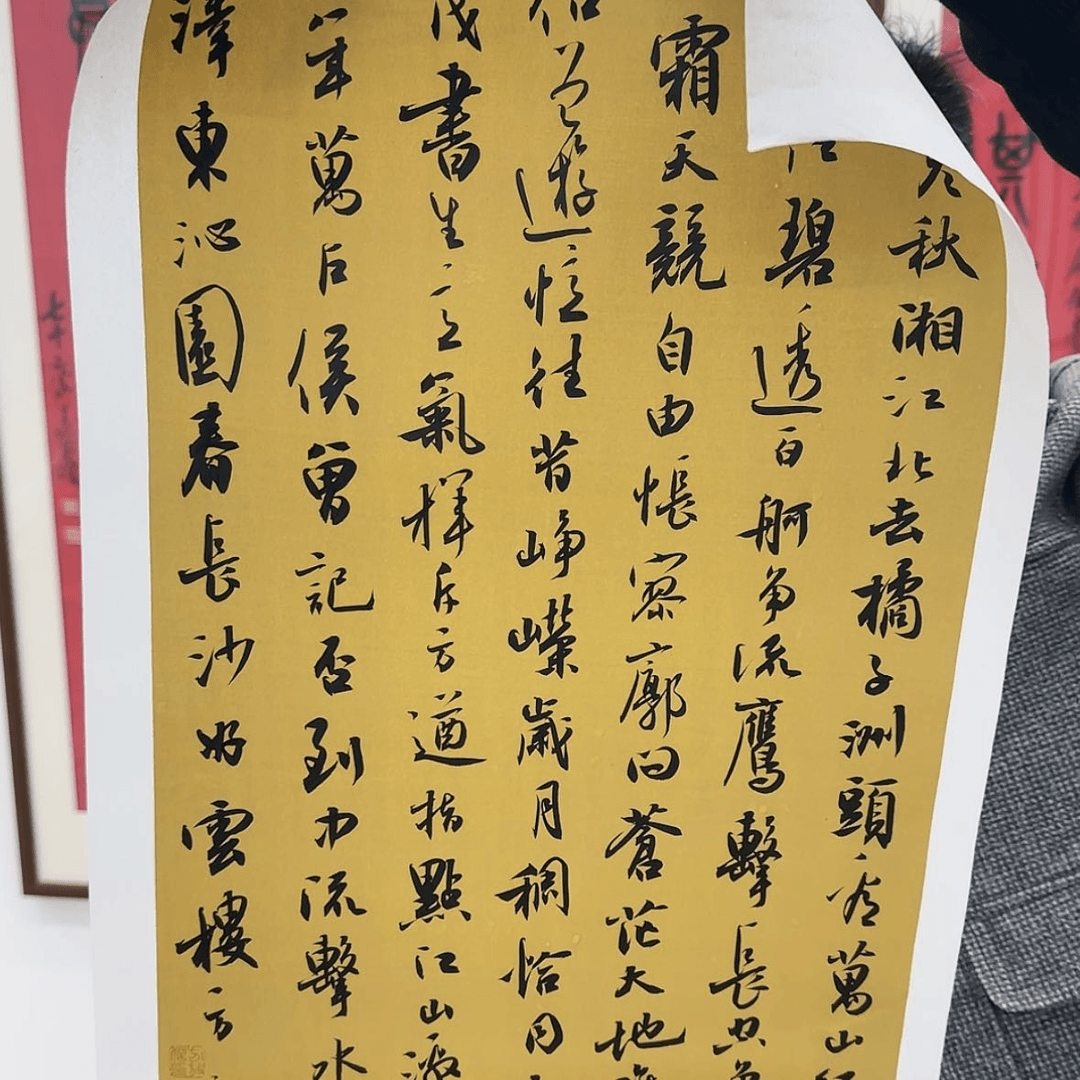 秋湘江北去橘子洲頭看萬山
江碧透百舸争流鷹擊長空魚
霜天競自由悵寥廓問蒼茫大地
侣曾遊憶往昔崢嶸歲月稠恰同
茂書生意氣揮斥方遒指點江山激
年萬户侯曾記否到中流擊水
澤東沁園春長沙雲樓方